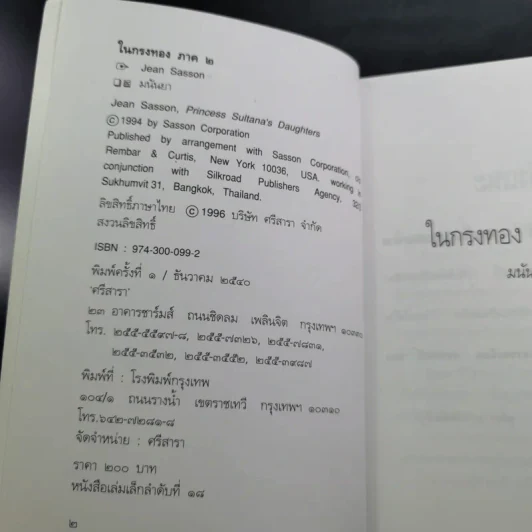 ในกรงทอง ภาค ๒
Jean Sasson
มนันยา
Jean Sasson, Princess Sultana's Daughters
©1994 by Sasson Corporation
Published by arrangement with Sasson Corporation,
Rembar & Curtis, New York 10036, USA. working
conjunction with Silkroad Publishers Agency,
Sukhumvit 31, Bangkok, Thailand.
ลิขสิทธิ์ภาษาไทย ©1996 บริษัท ศรีสารา จำกัด
สงวนลิขสิทธิ์
ISBN : 974-300-099-2
พิมพ์ครั้งที่ ๑ / ธันวาคม ๒๕๔๐
'ศรีสารา'
๒๓ อาคารชาร์มส์ ถนนชิดลม เพลินจิต กรุงเทพฯ
โทร. ๒๕๕-๕๕๙๗-๘, ๒๕๕-๗๓๒๖, ๒๕๕-๗๘๓๑,
๒๕๕-๓๕๓๒, ๒๕๕-๓๕๕๒, ๒๕๕-๓๙๘๗
พิมพ์ที่ : โรงพิมพ์กรุงเทพ
๑๐๔/๑ ถนนรางน้ำ เขตราชเทวี กรุงเทพฯ ๑๐๓๑๐
โทร.๖๔๒-๗๒๘๑-๘
จัดจำหน่าย : ศรีสารา
ราคา ๒๐๐ บาท
หนังสือเล่มเล็กลำดับที่ ๑๘
๒
ในกรงทอง